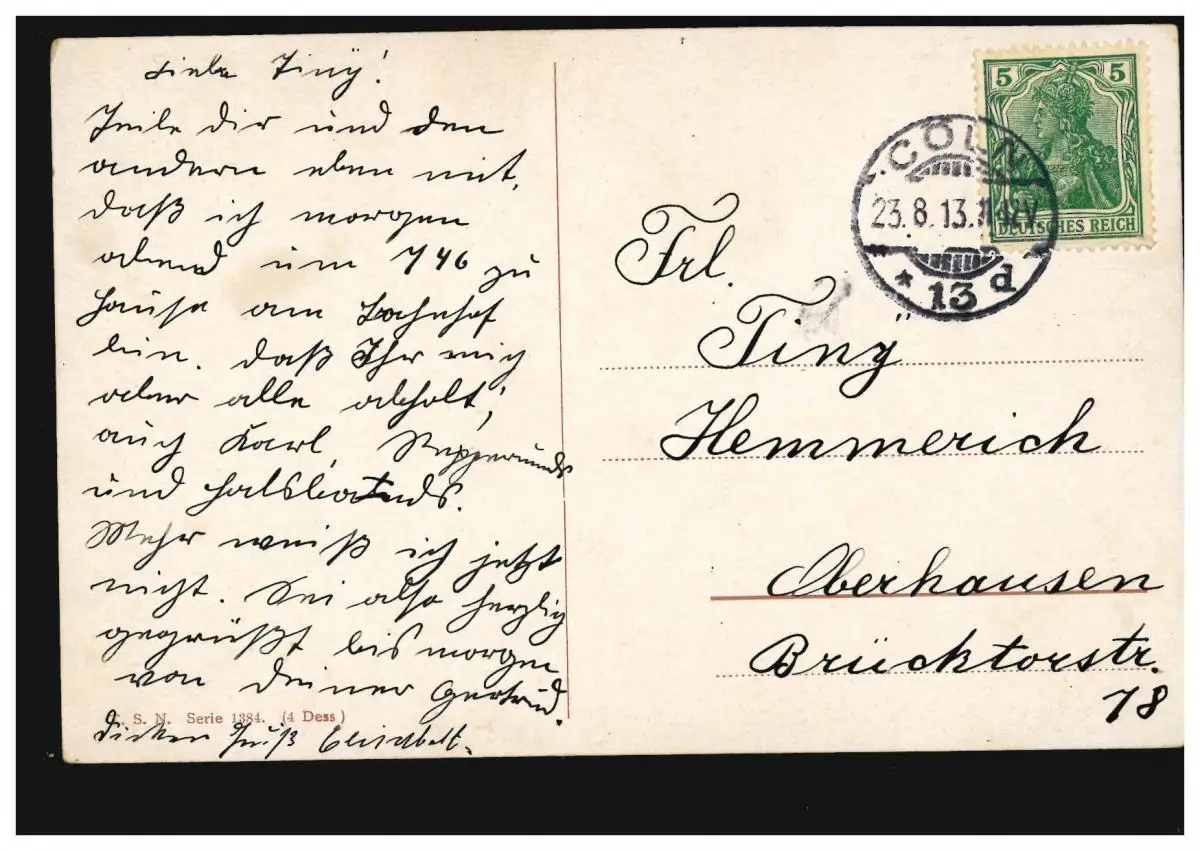 Liebe Tinÿ!
Teile dir und den
andern eben mit,
daß ich morgen
abend um 7 46 zu
Hause am Bahnhof
bin. daß Ihr mich
aber alle abholt,
auch Karl,
und
Mehr weiß ich jetzt
nicht. Sei also herzlich
gegrüßt bis morgen
von deiner Gertrud.
S. N. Serie 1384. (4 Dess)
dicken Elisabeth.
5 5
DEUTSCHES REICH
CÖLN
23.8.13.
* 13 d
Frl.
Tinÿ
Hemmerich
Oberhausen
Brücktorstr.
78